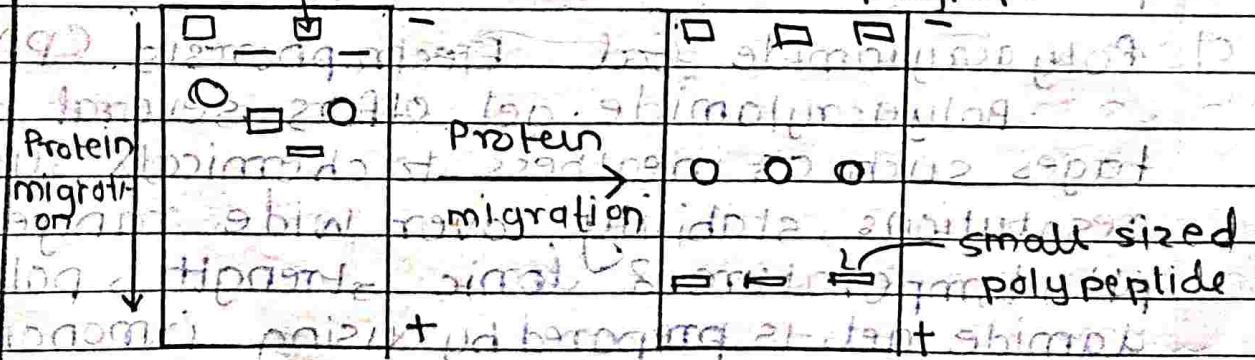 −
−
Protein
migrati-
on
Protein
migration
small sized
polypeptide
+
+